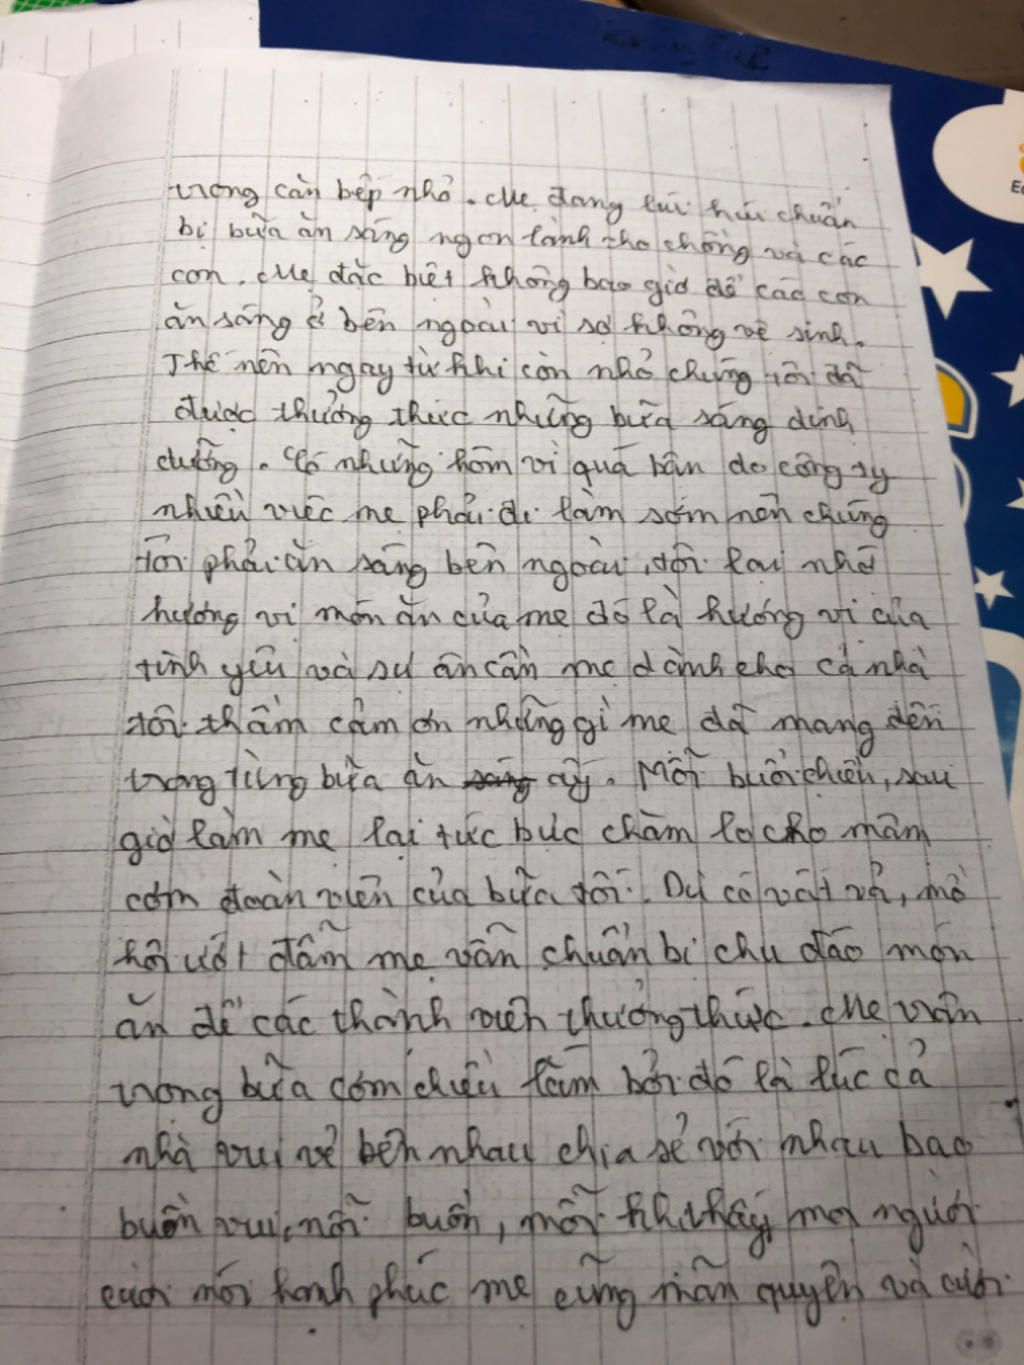 trong căn bếp nhỏ. Mẹ đang lúi húi chuẩn
bị bữa ăn sáng ngon lành cho chồng và các
con. Mẹ đặc biệt không bao giờ để các con
ăn sáng ở bên ngoài vì sợ không vệ sinh.
Thế nên ngay từ khi còn nhỏ chúng tôi đã
được thưởng thức những bữa sáng dinh
dưỡng. Có những hôm vì quá bận do công ty
nhiều việc mẹ phải đi làm sớm nên chúng
tôi phải ăn sáng bên ngoài, tôi lại nhớ
hương vị món ăn của mẹ đó là hương vị của
tình yêu và sự ân cần mẹ dành cho cả nhà
tôi thầm cảm ơn những gì mẹ đã mang đến
trong từng bữa ăn sáng ấy. Mỗi buổi chiều, sau
giờ làm mẹ lại tức bực chăm lo cho mâm
cơm đoàn viên của bữa tối. Dù có vất vả, mồ
hôi ướt đẫm mẹ vẫn chuẩn bị chu đáo món
ăn để các thành viên thưởng thức. Mẹ vẫn
trọng bữa cơm chiều lắm bởi đó là lúc cả
nhà vui vẻ bên nhau chia sẻ với nhau bao
buồn vui, nỗi buồn, mỗi khi thấy mọi người
cười nói hạnh phúc mẹ cũng mãn quyện và cười